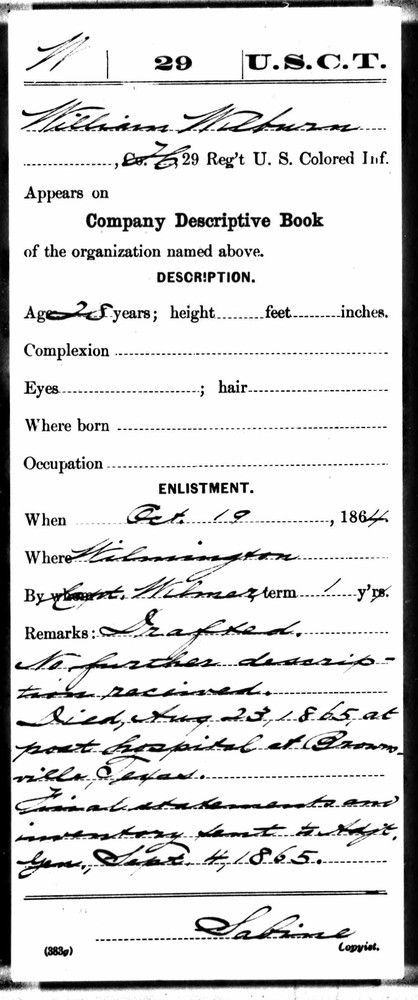 W | 29 | U.S.C.T.
William Wilburn
, Co. H, 29 Reg't U. S. Colored Inf.
Appears on
Company Descriptive Book
of the organization named above.
DESCRIPTION.
Age 28 years; height feet inches.
Complexion
Eyes ; hair
Where born
Occupation
ENLISTMENT.
When Oct. 19, 1864
Where Wilmington
By whom Capt. Wilmer, term 1 y'rs.
Remarks: Drafted.
No further descrip-
tion received.
Died, Aug 23, 1865, at
post hospital at Browns-
ville, Texas.
Final statements and
inventory sent to Adjt.
Gen., Sept. 4, 1865.
Sabine
(383g) Copyist.